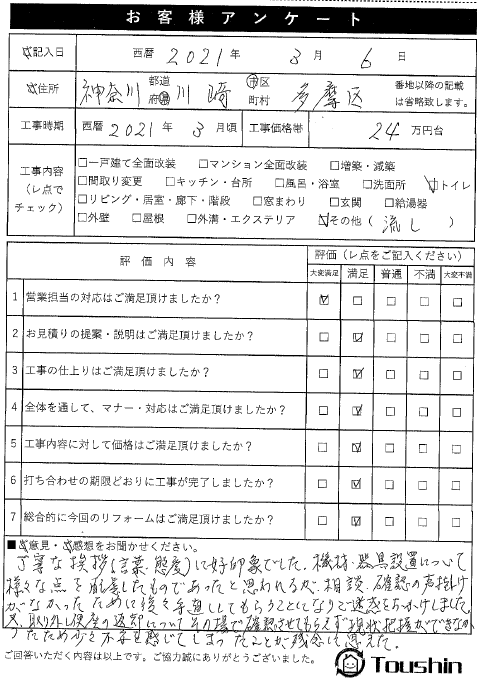 お客様アンケート
☑記入日 西暦 2021 年 3 月 6 日
☑住所 神奈川 都道府県 川崎 市区町村 多摩区 番地以降の記載は省略致します。
工事時期 西暦 2021 年 3 月頃 工事価格帯 24 万円台
工事内容(レ点でチェック)
□一戸建て全面改装 □マンション全面改装 □増築・減築
□間取り変更 □キッチン・台所 □風呂・浴室 □洗面所 ☑トイレ
□リビング・居室・廊下・階段 □窓まわり □玄関 □給湯器
□外壁 □屋根 □外溝・エクステリア ☑その他(流し)
評価内容 評価(レ点をご記入ください)
大変満足 満足 普通 不満 大変不満
1 営業担当の対応はご満足頂けましたか? ☑ □ □ □ □
2 お見積りの提案・説明はご満足頂けましたか? □ ☑ □ □ □
3 工事の仕上りはご満足頂けましたか? □ ☑ □ □ □
4 全体を通して、マナー・対応はご満足頂けましたか? □ ☑ □ □ □
5 工事内容に対して価格はご満足頂けましたか? □ ☑ □ □ □
6 打ち合わせの期限どおりに工事が完了しましたか? □ ☑ □ □ □
7 総合的に今回のリフォームはご満足頂けましたか? □ ☑ □ □ □
■☑意見・☑感想をお聞かせください。
丁寧な挨拶(言葉、態度)に好印象でした。機材・器具設置について
様々な点を配慮したものであったと思われるが、相談、確認の声掛け
がなかったために後々手直ししてもらうことになりご迷惑をおかけしました。
又、取り外し便座の返却についてその場で確認させてもらえず現状把握ができなか
ったため少々不安を感じてしまったことが残念に思えた。
ご回答いただく内容は以上です。ご協力誠にありがとうございました。
Toushin